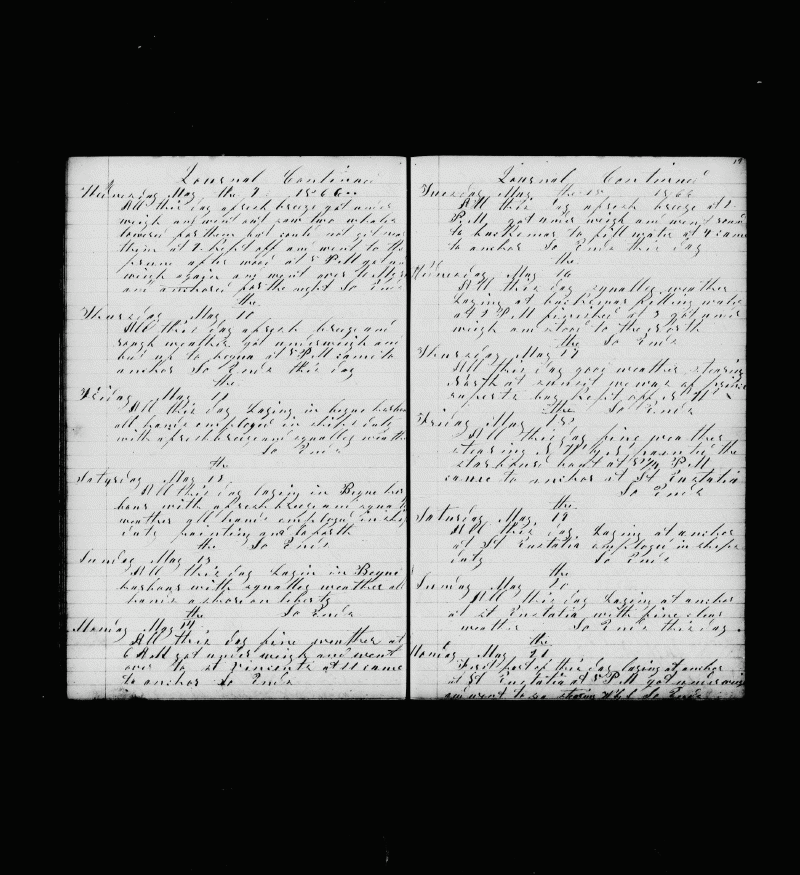 Journal Continued
Wednesday May the 9 1866
All this day a fresh breeze got under
weigh and went out saw two whales
lowered for them but could not get near
them at 2 kept off and went to the
after wood at 5 PM got under
weigh again and went over to
and anchored for the night So Ends
the
Thursday May 10
All this day a fresh breeze and
rough weather got underweigh and
beat up to bequa at 5 PM came to
anchor So Ends this day
the
Friday May 11
All this day Laying in bequa harbour
all hands employed in ships duty
with a fresh breeze and squalley weather
So Ends
the
Saturday May 12
All this day laying in Bequa har
bour with a fresh breeze and squally
weather all hands employed in ship
duty painting and so forth
the So Ends
Sunday May 13
All this day Layin in Bequi
harbour with squalley weather all
hands ashore on liberty
the So Ends
Monday May 14
All this day fine weather at
6 AM got under weigh and went
over to st vincents at 11 came
to anchor So Ends
19
Journal Continued
Tuesday May the 15 1866
All this day a fresh breeze at 2
P.M. got under weigh and went round
to to fill water at 4 came
to anchor So Ends this day
the
Wednesday May 16
All this day squalley weather
Laying at filling water
at 2 PM finished at 3 got under
weigh and stood to the North
the So Ends
Thursday May 17
All this day good weather steering
North at sunset
kept off
the So Ends
Friday May 18
All this day fine weather
steering painted the
starboard boat at PM
came to anchor at St Eustatia
So Ends
the
Saturday May 19
All this day Laying at anchor
at St Eustatia employed in ships
duty So Ends
the
Sunday May 20
All this day Laying at anchor
at St Eustatia with fine clear
weather So Ends this day
the
Monday May 21
First part of this day laying at anchor
at St Eustatia at 5 PM got under weigh
and went to sea So Ends